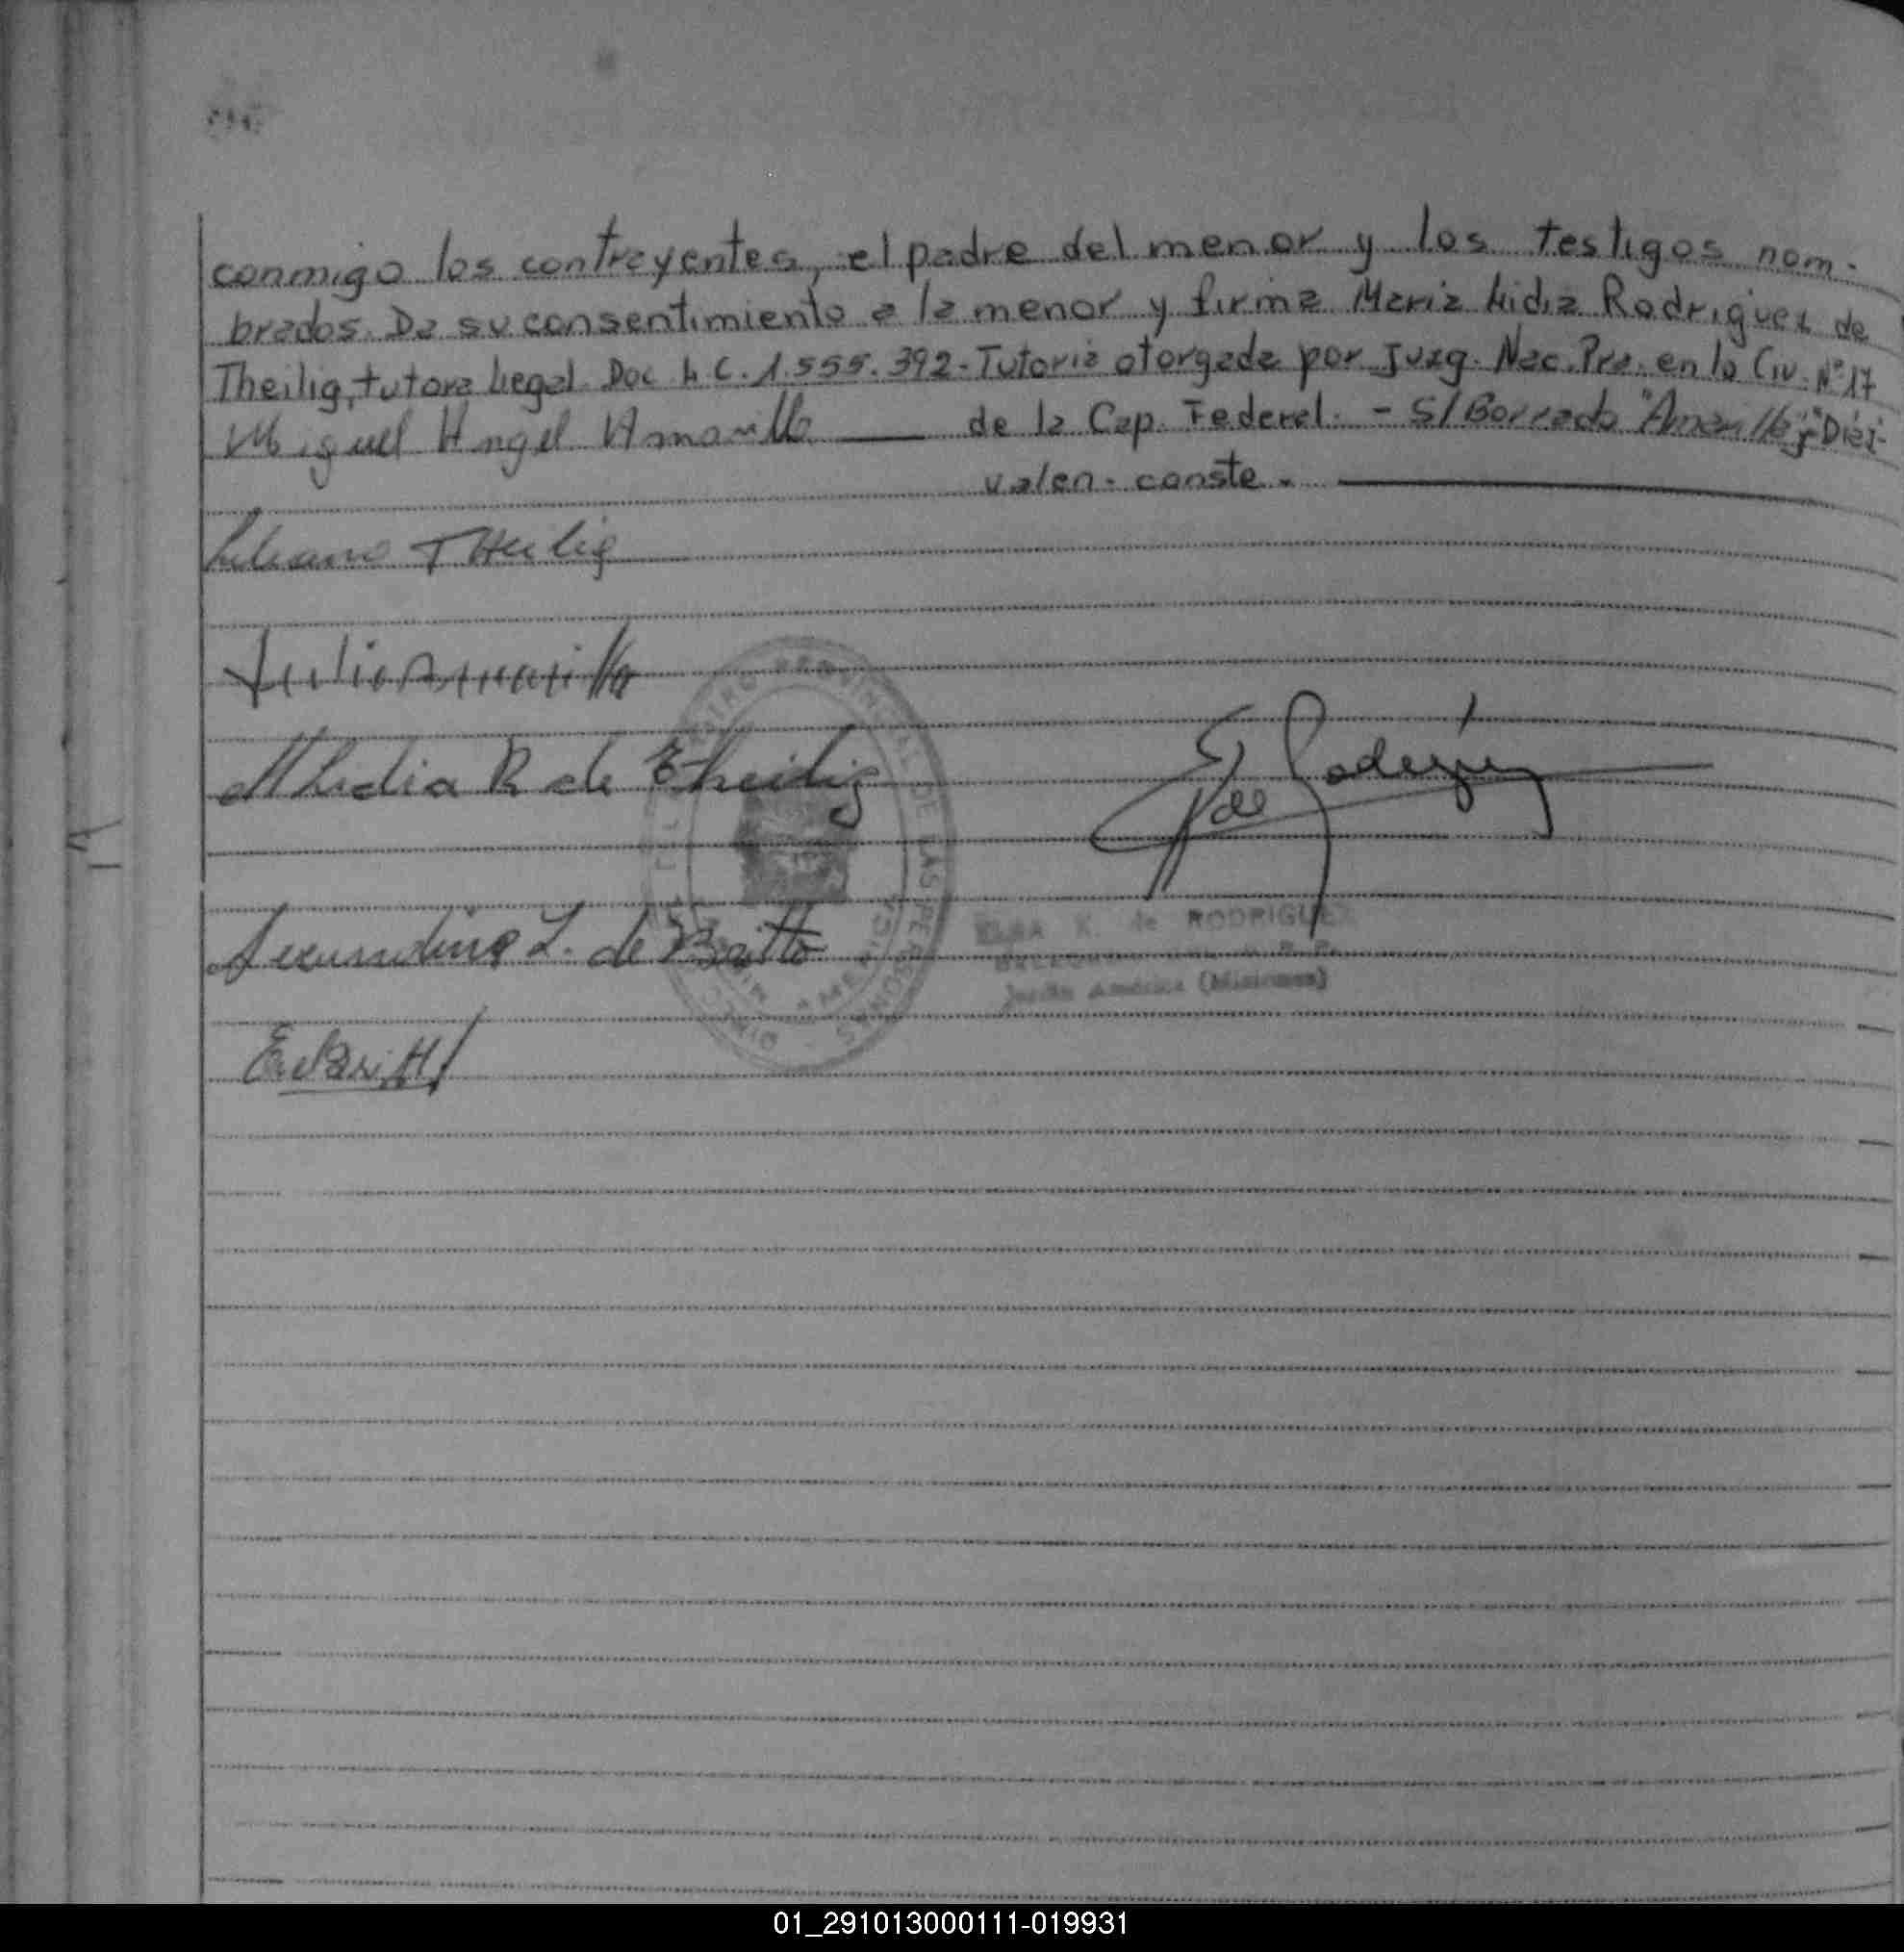 conmigo los contrayentes, el padre del menor y los testigos nom-
brados. Da su consentimiento a la menor y firma Maria Lidia Rodriguez de
Theilig, tutora Legal Doc L C. 1.555.392 - Tutoria otorgada por Juzg. Nac. Pra. en lo Civ. N° 17
Miguel Angel Amarilla de la Cap. Federal. - S/ Borrado "Amarilla" y "Diez"
valen. conste.
Liliana Theilig
Julio Amarilla
M Lidia R de Theilig
E de Rodriguez
REGISTRO PROVINCIAL DE LAS PERSONAS
ELBA K. de RODRIGUEZ
Jardín América (Misiones)
Secundina L. de Britto
E. de Britto
01_291013000111-019931